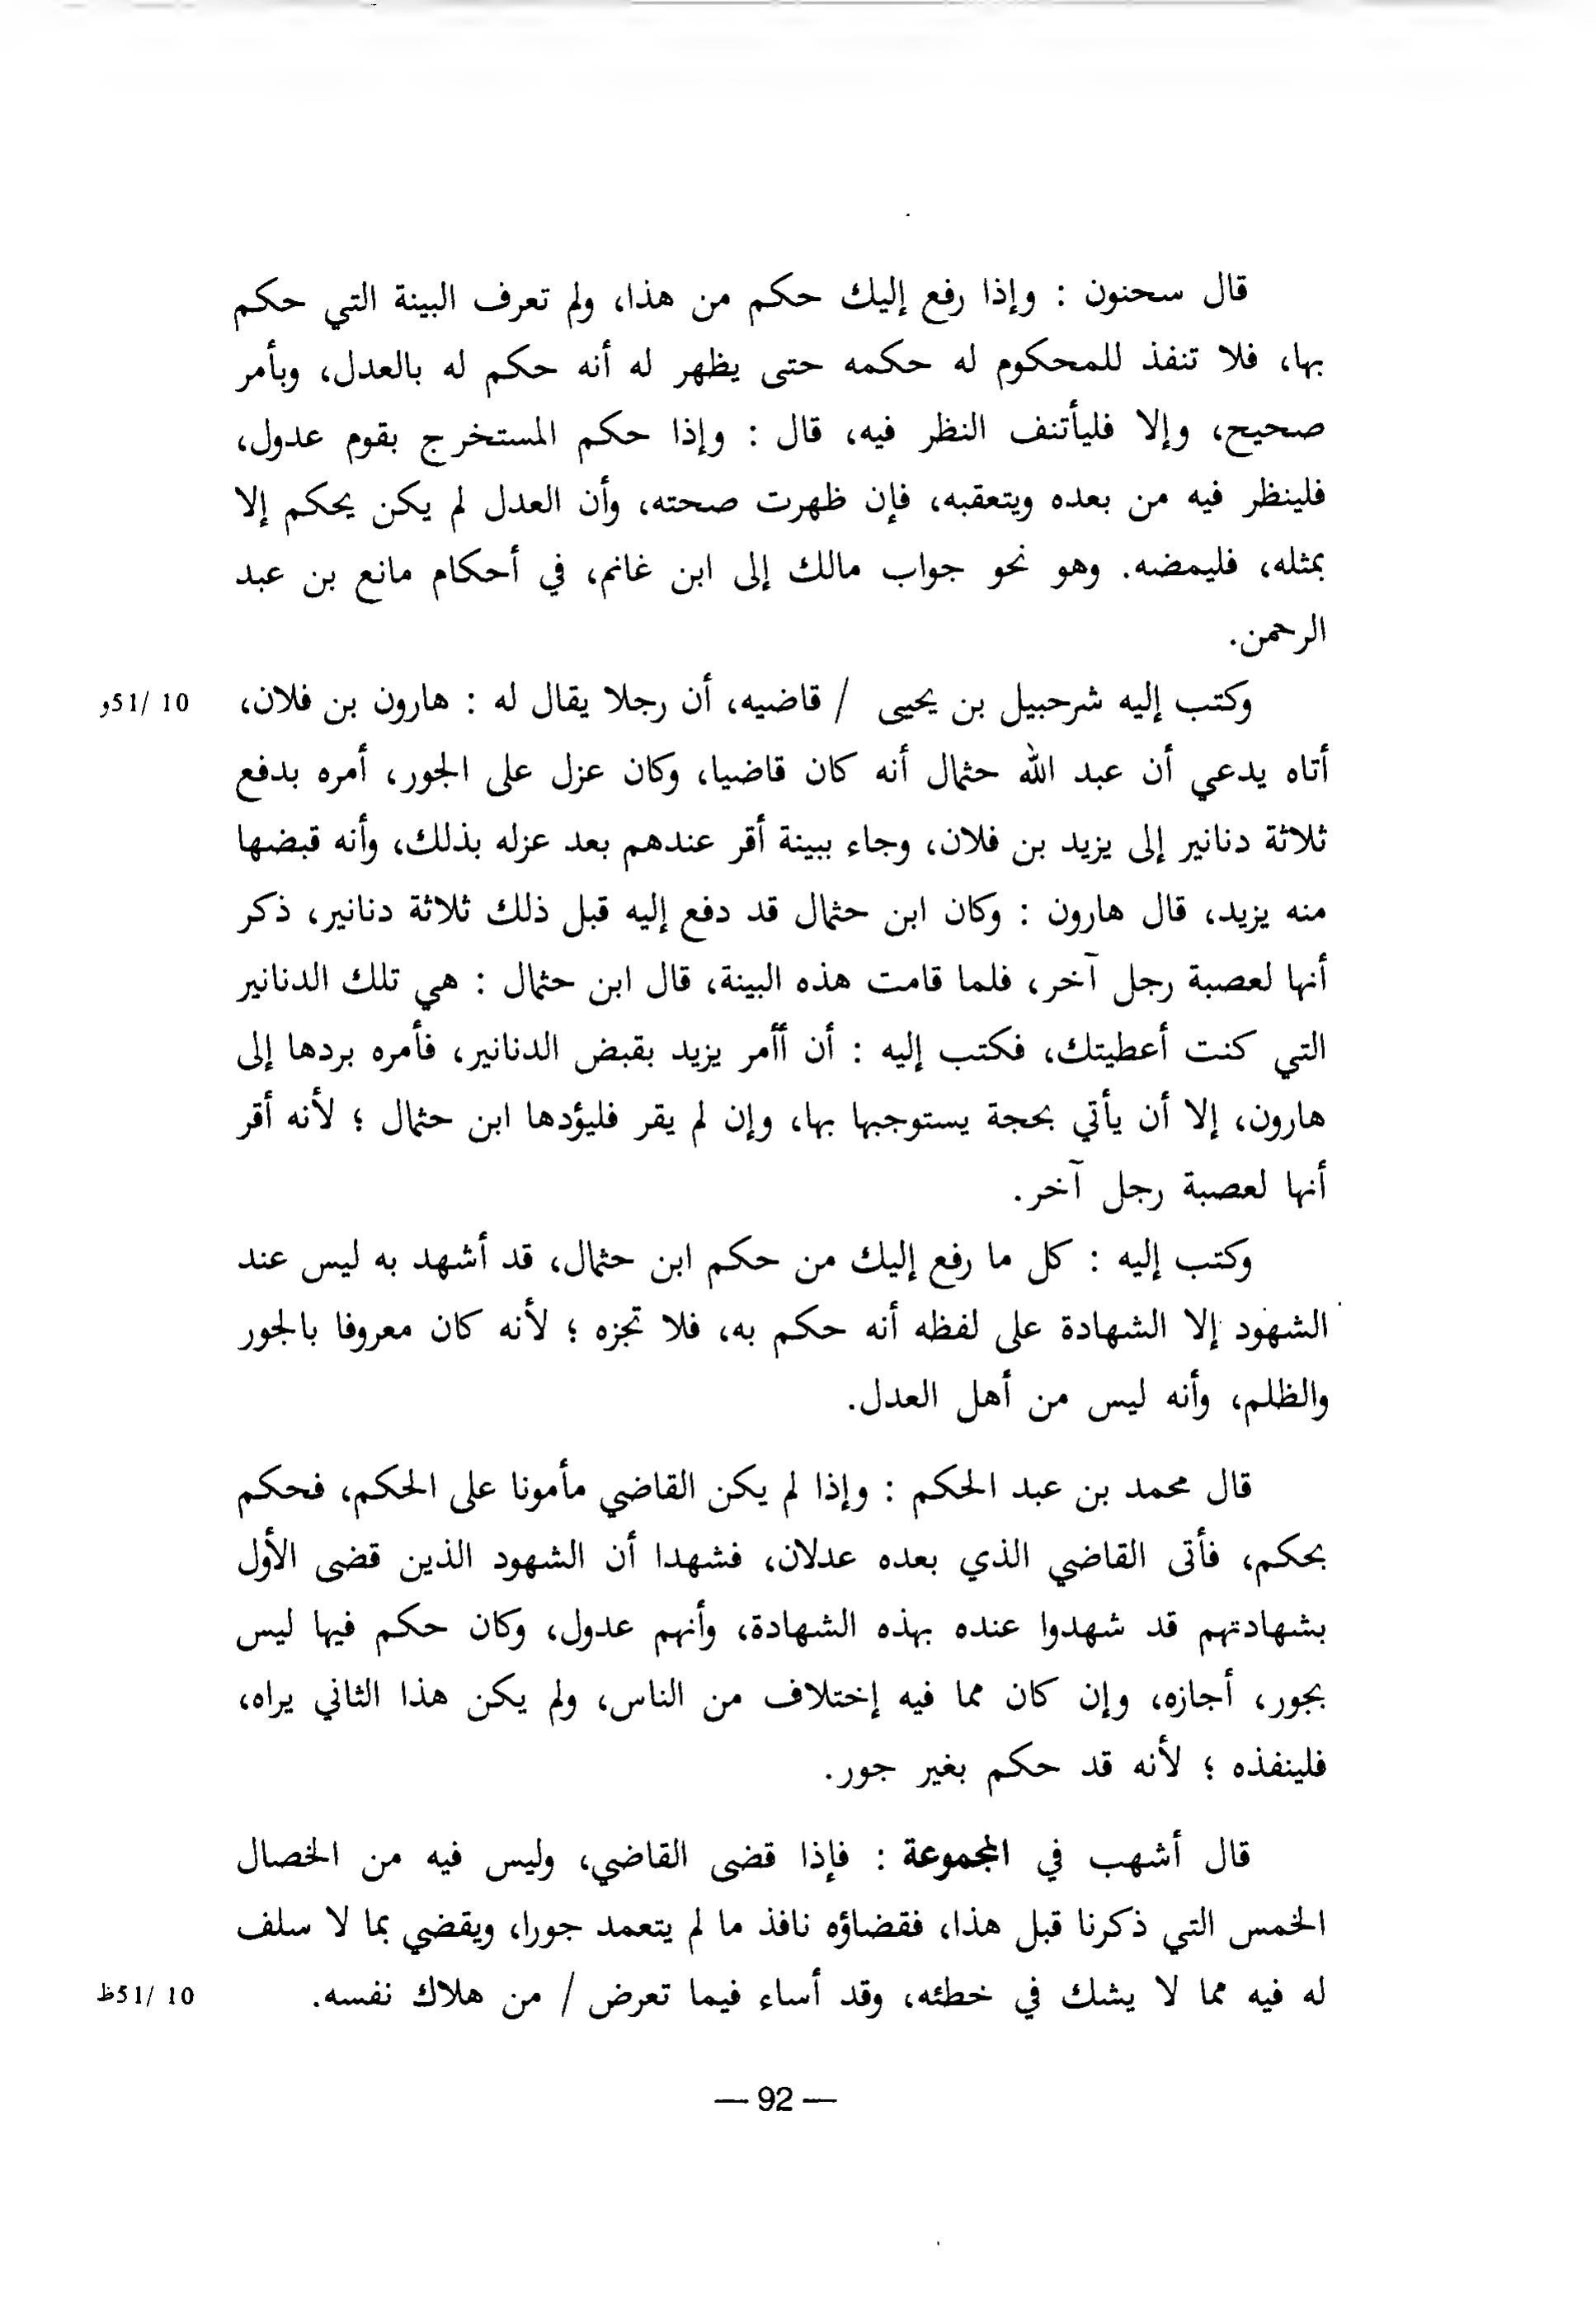 قال سحنون : وإذا رفع إليك حكم من هذا، ولم تعرف البينة التي حكم
بها، فلا تنفذ للمحكوم له حكمه حتى يظهر له أنه حكم له بالعدل، وبأمر
صحيح، وإلا فليأتنف النظر فيه، قال : وإذا حكم المستخرج بقوم عدول،
فلينظر فيه من بعده ويتعقبه، فإن ظهرت صحته، وأن العدل لم يكن يحكم إلا
بمثله، فليمضه. وهو نحو جواب مالك إلى ابن غانم، في أحكام مانع بن عبد
الرحمن.
وكتب إليه شرحبيل بن يحيى / قاضيه، أن رجلا يقال له : هارون بن فلان، 10 /51و
أتاه يدعي أن عبد الله حثمال أنه كان قاضيا، وكان عزل على الجور، أمره بدفع
ثلاثة دنانير إلى يزيد بن فلان، وجاء ببينة أقر عندهم بعد عزله بذلك، وأنه قبضها
منه يزيد، قال هارون : وكان ابن حثمال قد دفع إليه قبل ذلك ثلاثة دنانير، ذكر
أنها لعصبة رجل آخر، فلما قامت هذه البينة، قال ابن حثمال : هي تلك الدنانير
التي كنت أعطيتك، فكتب إليه : أن أأمر يزيد بقبض الدنانير، فأمره بردها إلى
هارون، إلا أن يأتي بحجة يستوجبها بها، وإن لم يقر فليؤدها ابن حثمال ؛ لأنه أقر
أنها لعصبة رجل آخر.
وكتب إليه : كل ما رفع إليك من حكم ابن حثمال، قد أشهد به ليس عند
الشهود إلا الشهادة على لفظه أنه حكم به، فلا تجزه ؛ لأنه كان معروفا بالجور
والظلم، وأنه ليس من أهل العدل.
قال محمد بن عبد الحكم : وإذا لم يكن القاضي مأمونا على الحكم، فحكم
بحكم، فأتى القاضي الذي بعده عدلان، فشهدا أن الشهود الذين قضى الأول
بشهادتهم قد شهدوا عنده بهذه الشهادة، وأنهم عدول، وكان حكم فيها ليس
بجور، أجازه، وإن كان مما فيه إختلاف من الناس، ولم يكن هذا الثاني يراه،
فلينفذه ؛ لأنه قد حكم بغير جور.
قال أشهب في المجموعة : فإذا قضى القاضي، وليس فيه من الخصال
الخمس التي ذكرنا قبل هذا، فقضاؤه نافذ ما لم يتعمد جورا، ويقضي بما لا سلف
له فيه مما لا يشك في خطئه، وقد أساء فيما تعرض / من هلاك نفسه. 10 /51ظ
— 92 —